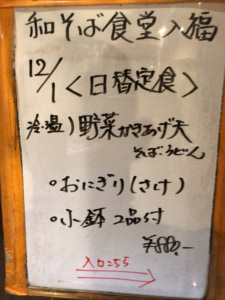 和そば食堂 入福
12/1 <日替定食>
冷・温) 野菜かきあげ天
そば・うどん
・おにぎり(さけ)
・小鉢 2品付
¥880.-
入口こちら